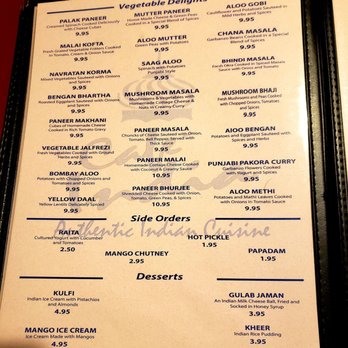 Vegetable Delights
PALAK PANEER
Creamed Spinach Cooked Deliciously
with Cheese Cubes
9.95
MUTTER PANEER
Home Made Cheese & Green Peas
Cooked in a Special Blend of Spices
9.95
ALOO GOBI
Cauliflower and Potatoes Sauteed in
Mild Herbs and Spices
9.95
MALAI KOFTA
Fresh Grated Vegetables Cooked
in Tomato, Cream & Onion Sauce
9.95
ALOO MUTTER
Green Peas with Potatoes
9.95
CHANA MASALA
Garbanzo Beans Cooked in a Special
Blend of Spices
9.95
NAVRATAN KORMA
Mixed Vegetables Sauteed with Onions
and Spices
9.95
SAAG ALOO
Spinach with Potatoes
Punjabi Style
9.95
BHINDI MASALA
Fresh Okra Cooked in Spread Masala
with Onions and Tomatoes
9.95
BENGAN BHARTHA
Roasted Eggplant Sauteed with Onion
and Spices
9.95
MUSHROOM MASALA
Mushrooms & Vegetables with
Homemade Cottage Cheese &
Nuts in Creamy Curry
9.95
MUSHROOM BHAJI
Fresh Mushrooms and Peas Cooked
with Chopped Onions, Tomatoes
and Spices
9.95
PANEER MAKHANI
Cubes of Homemade Cheese
Cooked in Rich Tomato Gravy
9.95
PANEER MASALA
Chuncks of Cheese Sauteed with Onion,
Tomato, Bell Pepper, Served with
Thick Sauce
9.95
AlOO BENGAN
Potatoes and Eggplant Sauteed with
Spices and Onion
9.95
VEGETABLE JALFREZI
Fresh Vegetables Cooked with Ground
Herbs and Spices
9.95
PANEER MALAI
Homemade Cottage Cheese Cooked
with Coconut & Creamy Sauce
9.95
PUNJABI PAKORA CURRY
Garbanzo Flower Fritters Cooked
with Yogurt and Spices
9.95
BOMBAY ALOO
Potatoes with Chopped Onions
and Tomatoes and Spices
9.95
PANEER BHURJEE
Shredded Cheese Cooked with Onion,
Tomato, Green Peas, & Spices
9.95
ALOO METHI
Potatoes and Mathi Leaves Cooked
with Onions in Tomato Sauce
9.95
YELLOW DAAL
Yellow Lentils Delicately Spiced
9.95
Authentic Indian Cuisine
Side Orders
RAITA
Cultured Yogurt with Cucumber
and Tomatoes
2.50
HOT PICKLE
1.95
MANGO CHUTNEY
2.95
PAPADAM
1.95
Desserts
KULFI
Indian Ice Cream with Pistachios
and Almonds
4.95
GULAB JAMAN
An Indian Milk Cheese Ball, Fried and
Socked in Honey Syrup
3.95
MANGO ICE CREAM
Ice Cream Made with Mangos
4.95
KHEER
Indian Rice Pudding
3.95